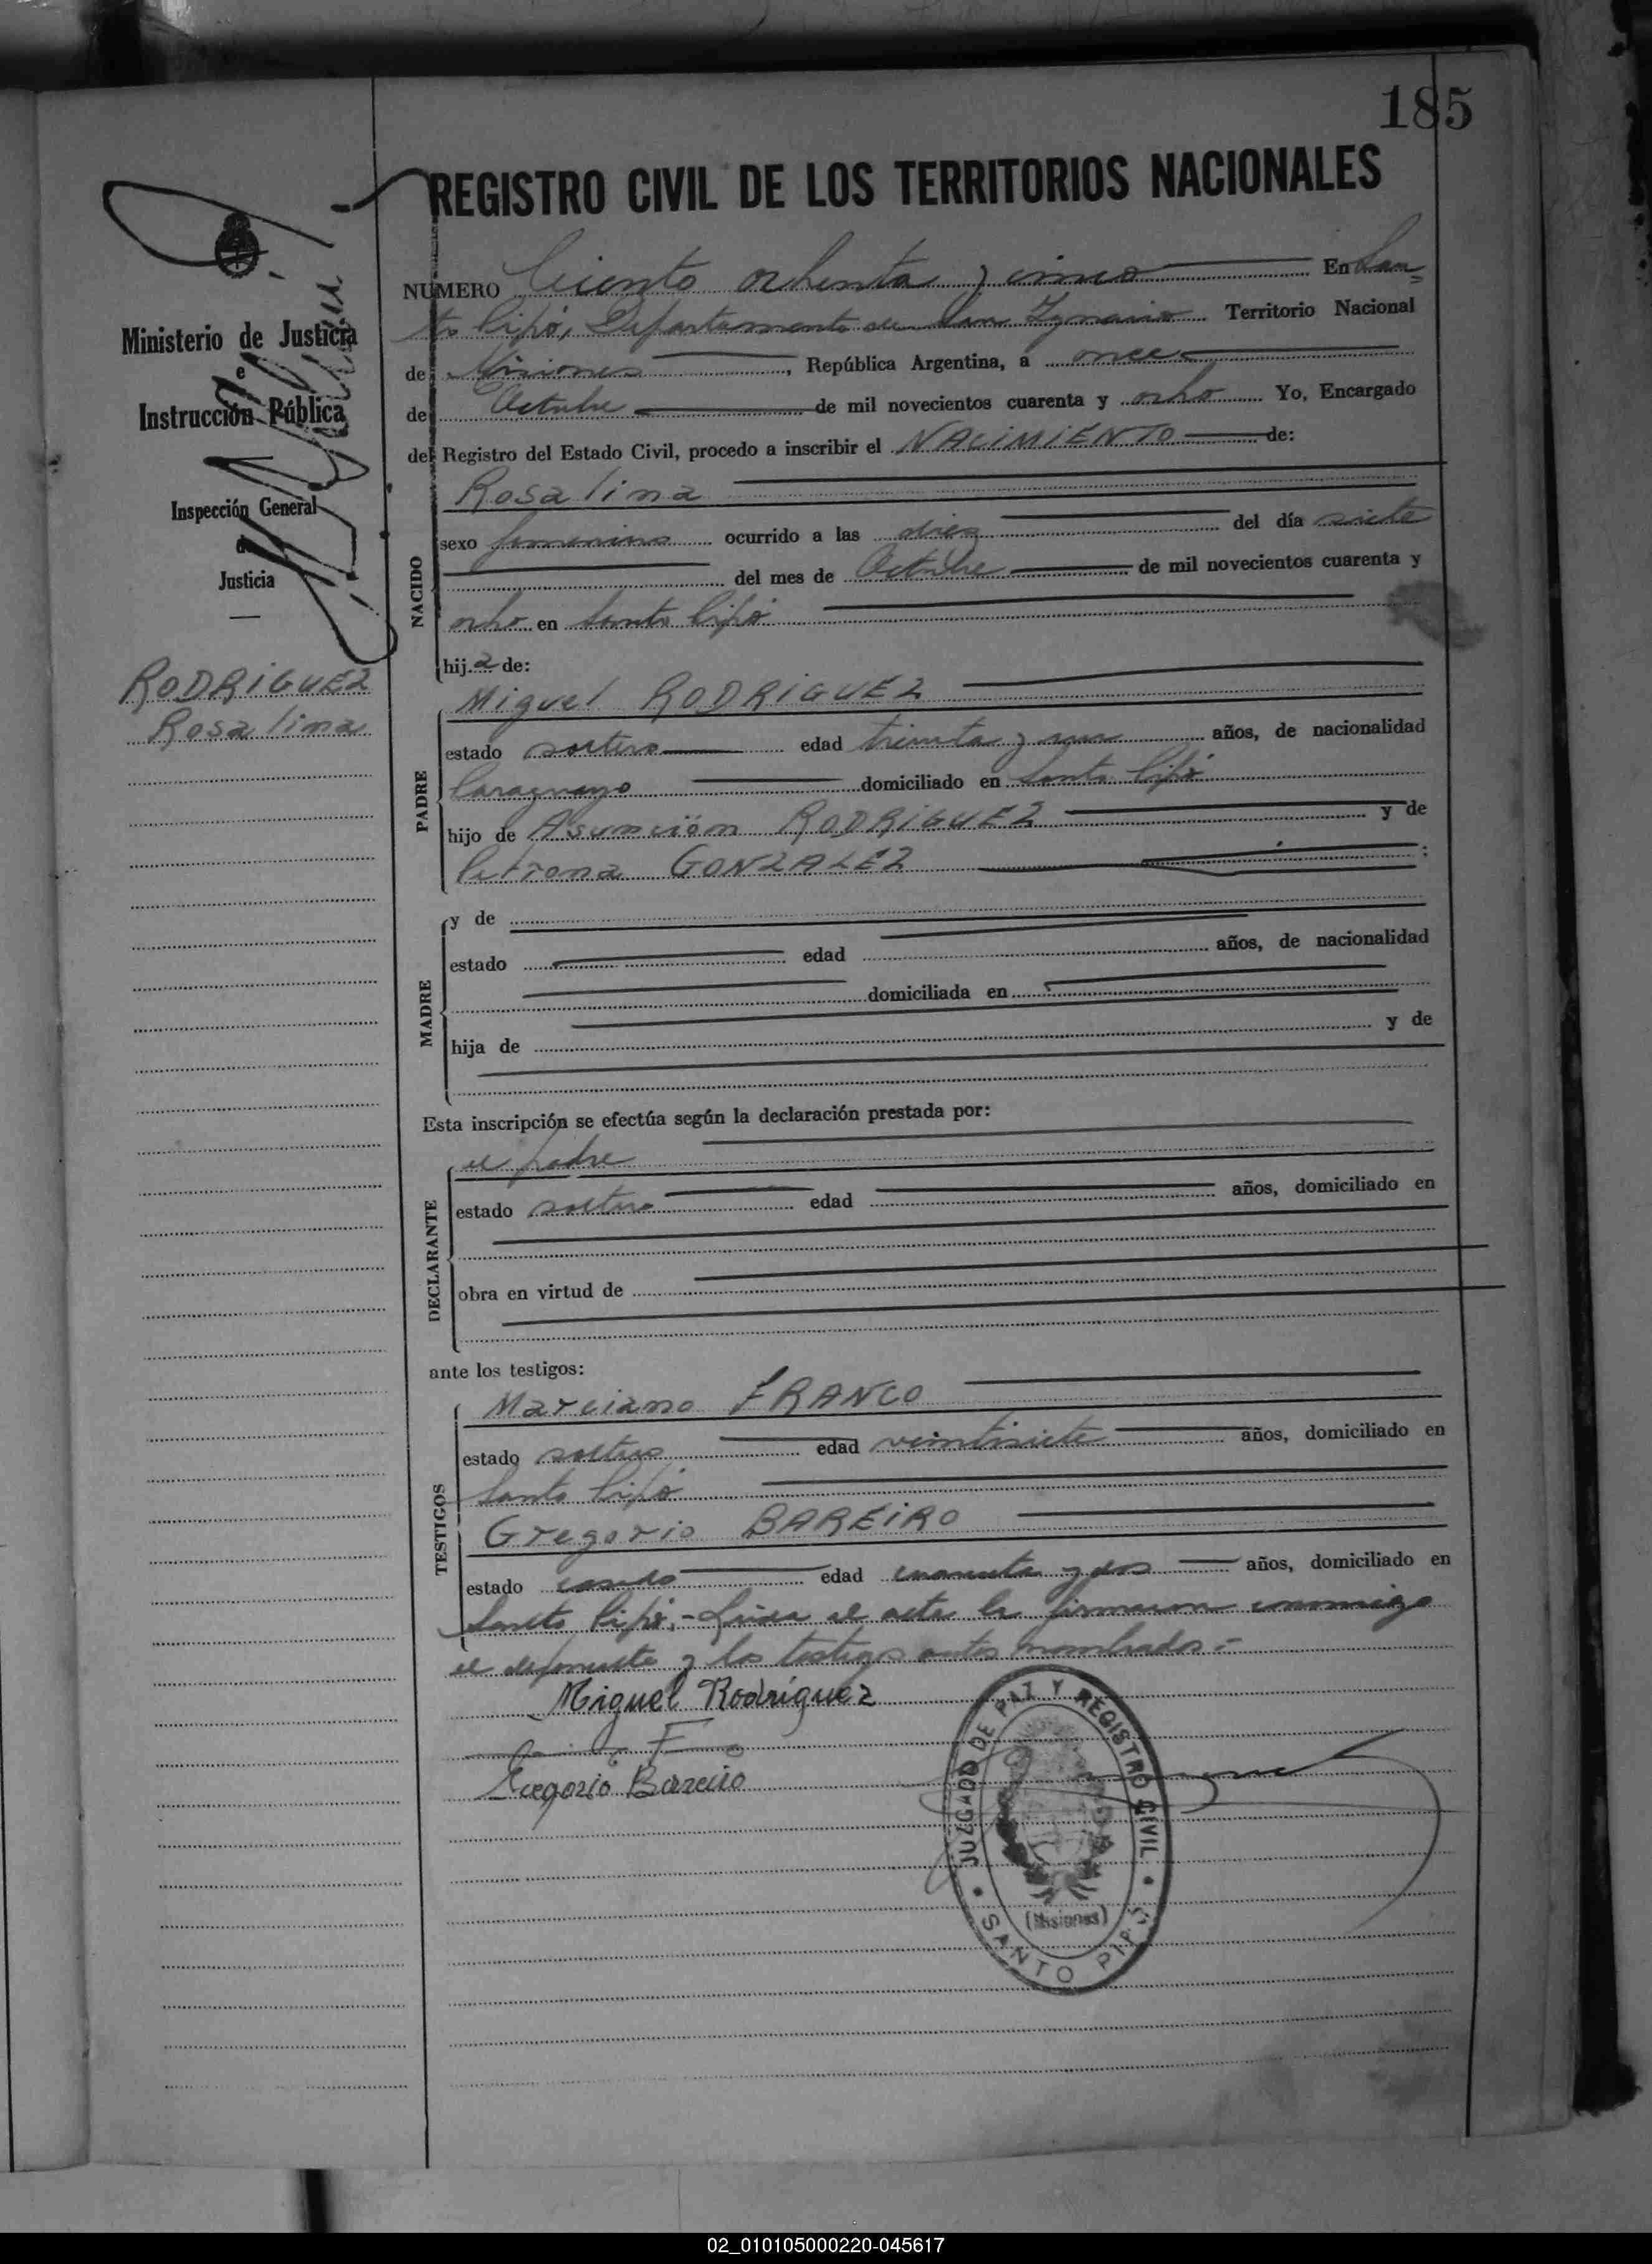 185
REGISTRO CIVIL DE LOS TERRITORIOS NACIONALES
NUMERO Ciento ochenta y cinco En San=
to Pipó, Departamento de San Ygnacio Territorio Nacional
de Misiones, República Argentina, a once
de Octubre de mil novecientos cuarenta y ocho Yo, Encargado
del Registro del Estado Civil, procedo a inscribir el NACIMIENTO de:
Ministerio de Justicia
e
Instrucción Pública
Inspección General
Justicia
RODRIGUEZ
Rosalina
NACIDO
Rosalina
sexo femenino ocurrido a las dies del día siete
del mes de Octubre de mil novecientos cuarenta y
ocho en Santo Pipó
hija de:
PADRE
Miguel RODRIGUEZ
estado soltero edad treinta y un años, de nacionalidad
Paraguayo domiciliado en Santo Pipó
hijo de Asunción RODRIGUEZ y de
Petrona GONZALEZ :
MADRE
y de
estado edad años, de nacionalidad
domiciliada en
hija de y de
Esta inscripción se efectúa según la declaración prestada por:
DECLARANTE
el padre
estado soltero edad años, domiciliado en
obra en virtud de
ante los testigos:
TESTIGOS
Marciano FRANCO
estado soltero edad veintisiete años, domiciliado en
Santo Pipó
Gregorio BAREIRO
estado casado edad cuarenta y dos años, domiciliado en
Santo Pipó,- Leída el acta la firmaron conmigo
el deponente y los testigos antes nombrados.-
Miguel Rodríguez
Gregorio Bareiro
JUZGADO DE PAZ Y REGISTRO CIVIL
(Misiones)
SANTO PIPÓ
02_010105000220-045617